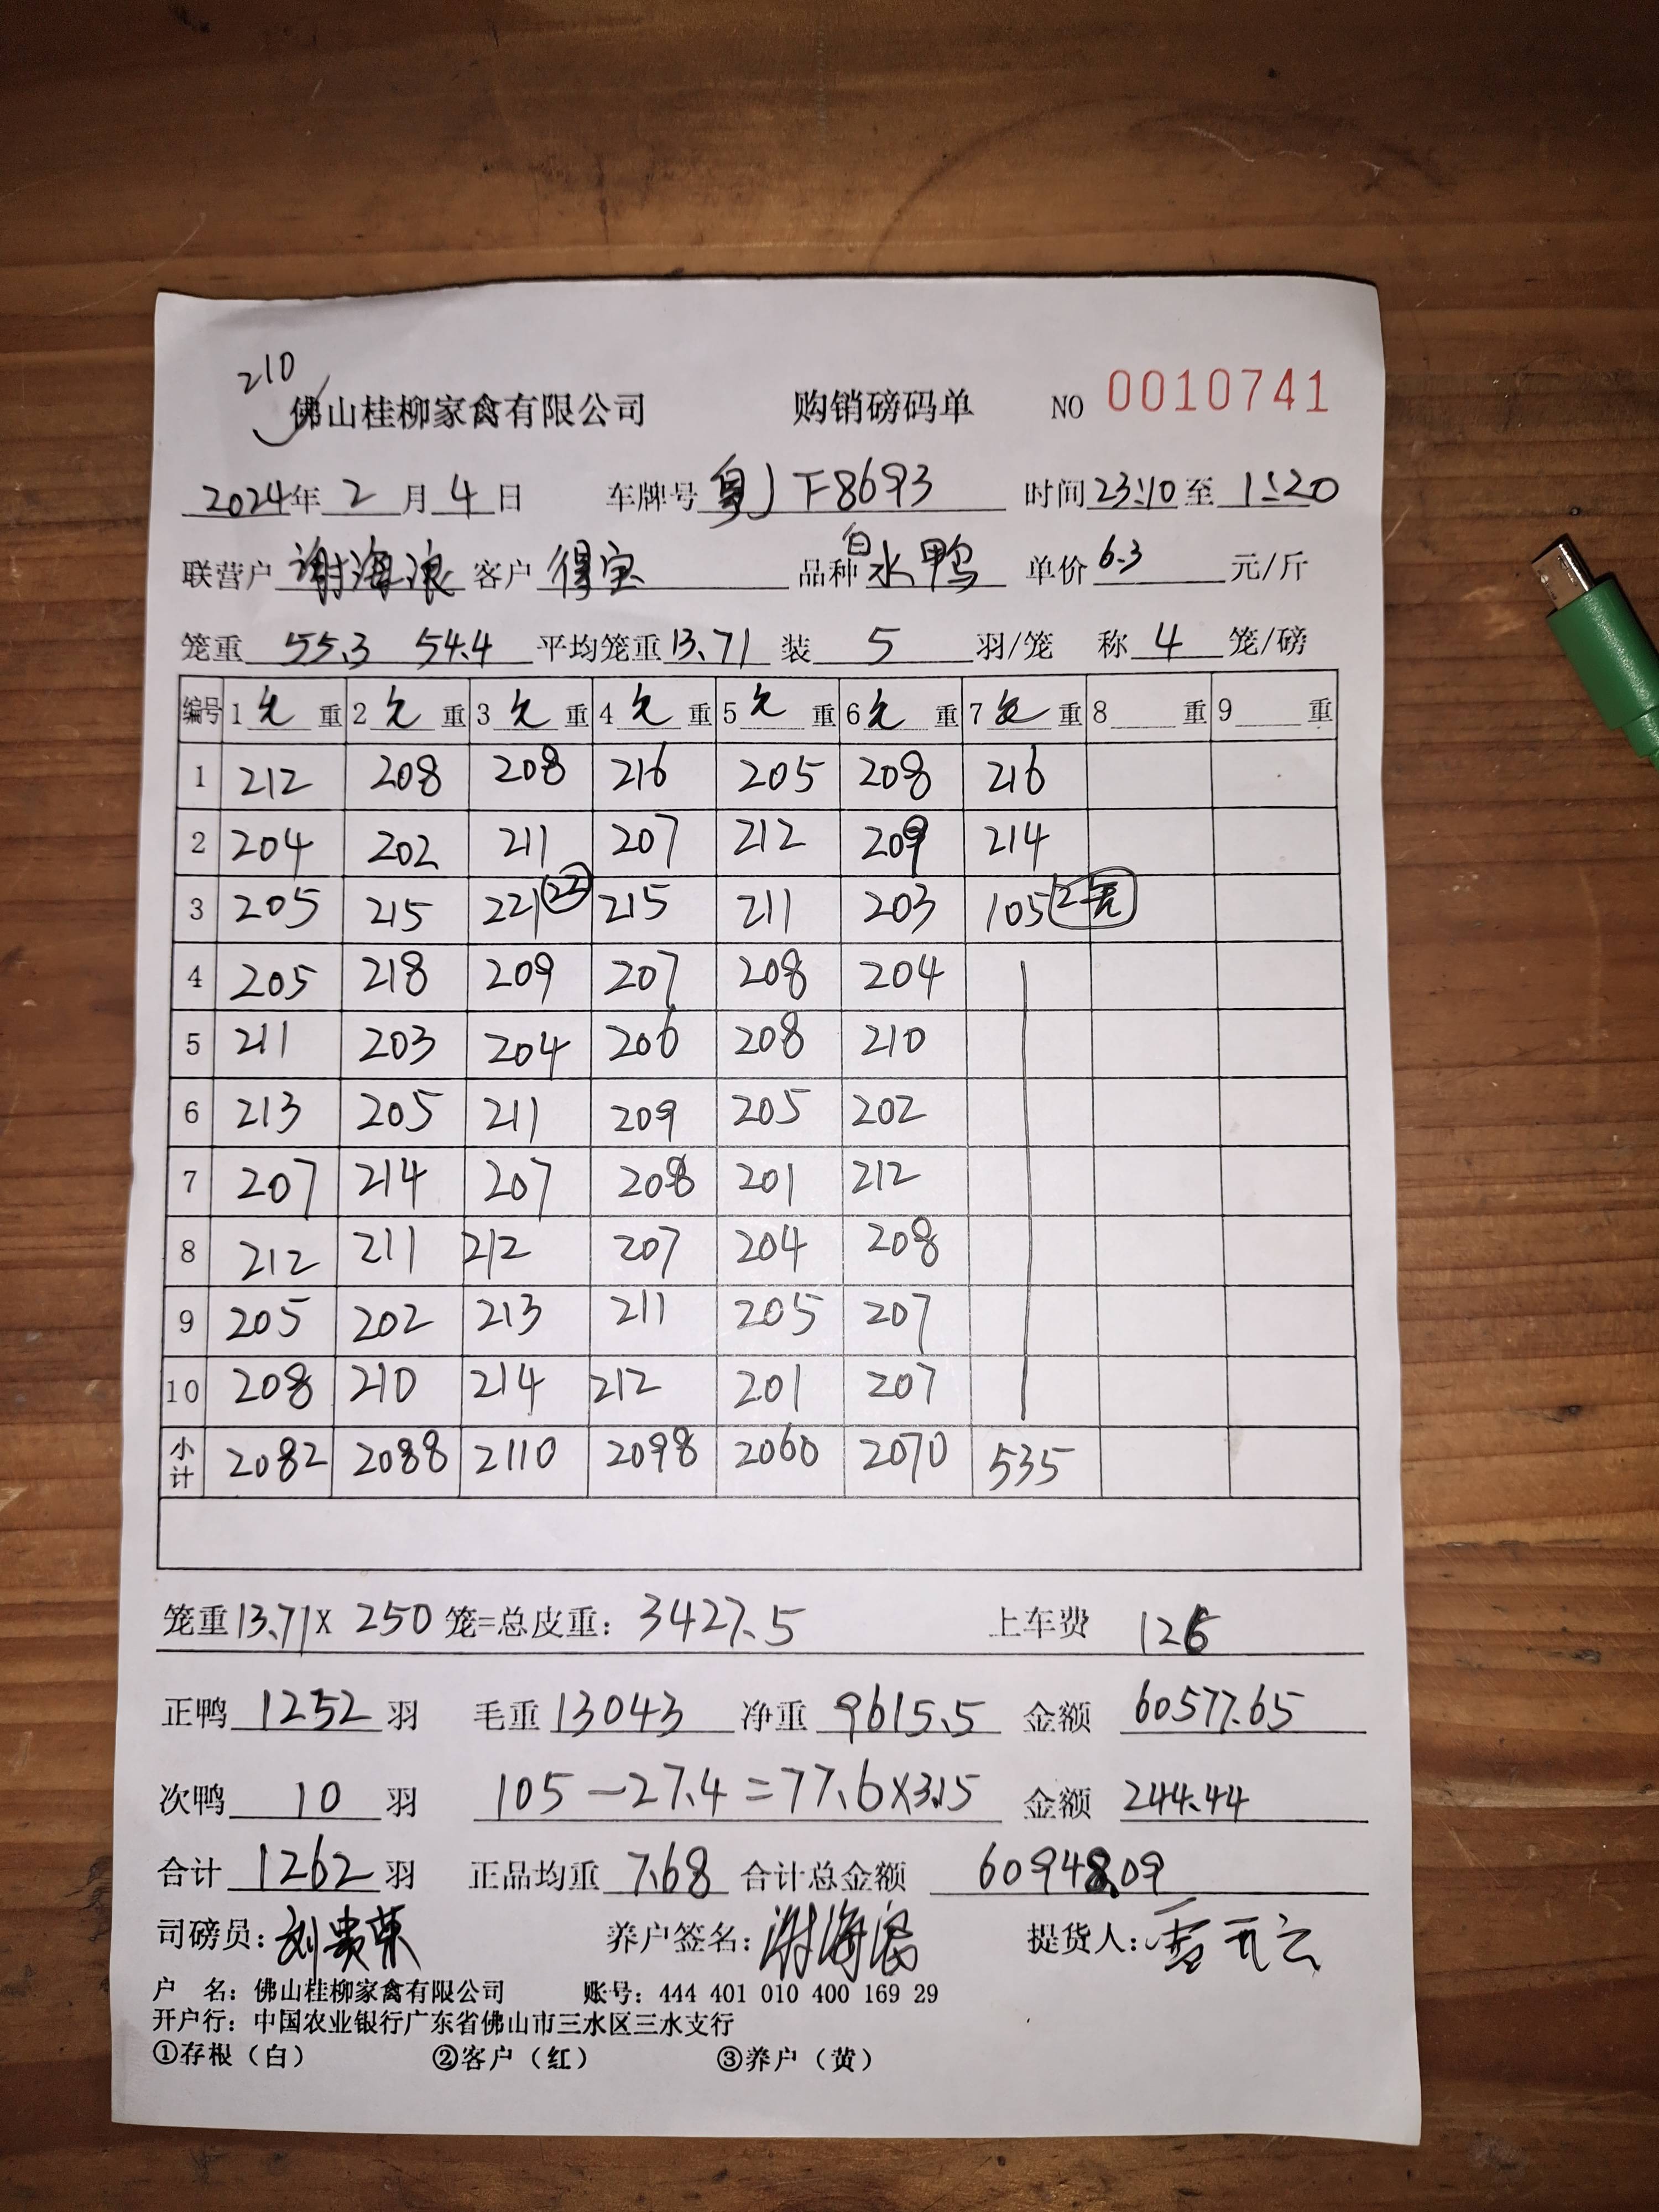 210
佛山桂柳家禽有限公司 购销磅码单 NO 0010741
2024年 2 月 4 日 车牌号 粤J F8693 时间 23:10 至 1:20
联营户 谢海浪 客户 得宝 品种 白水鸭 单价 6.3 元/斤
笼重 55.3 54.4 平均笼重 13.71 装 5 羽/笼 称 4 笼/磅
编号 1 重 2 重 3 重 4 重 5 重 6 重 7 重 8 重 9 重
1 212 208 208 216 205 208 216
2 204 202 211 207 212 209 214
3 205 215 221 22 215 211 203 105 2
4 205 218 209 207 208 204
5 211 203 204 206 208 210
6 213 205 211 209 205 202
7 207 214 207 208 201 212
8 212 211 212 207 204 208
9 205 202 213 211 205 207
10 208 210 214 212 201 207
小计 2082 2088 2110 2098 2060 2070 535
笼重 13.71 X 250 笼=总皮重: 3427.5 上车费 126
正鸭 1252 羽 毛重 13043 净重 9615.5 金额 60577.65
次鸭 10 羽 105-27.4=77.6×3.15 金额 244.44
合计 1262 羽 正品均重 7.68 合计总金额 60948.09
司磅员: 刘贵荣 养户签名: 谢海浪 提货人:
户 名: 佛山桂柳家禽有限公司 账号: 444 401 010 400 169 29
开户行: 中国农业银行广东省佛山市三水区三水支行
①存根（白） ②客户（红） ③养户（黄）